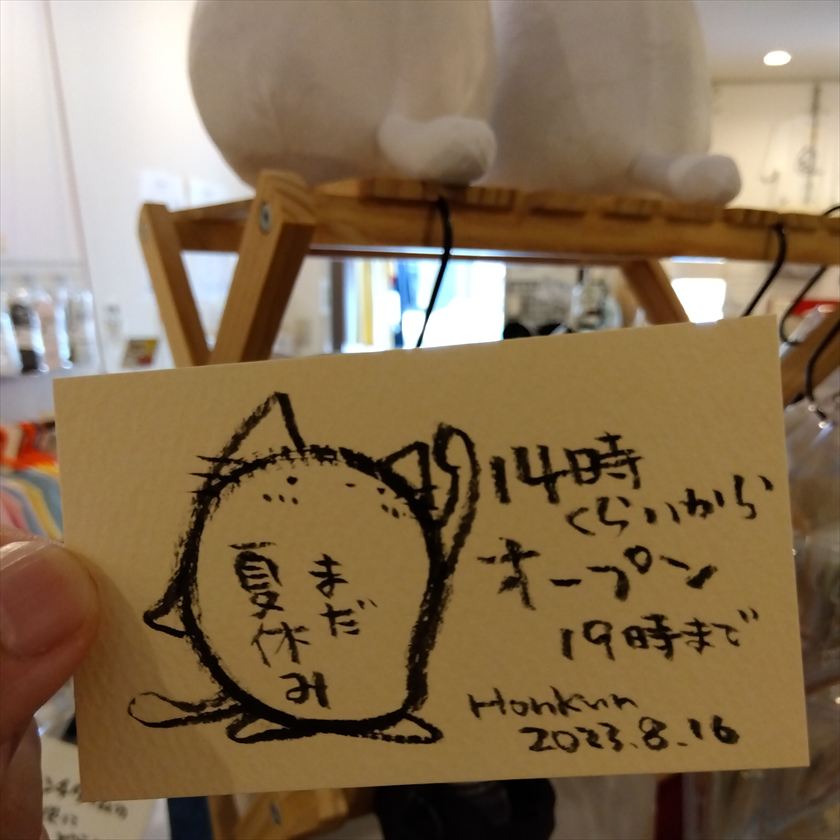 まだ
夏休み
14時
くらいから
オープン
19時まで
Honkun
2023.8.16